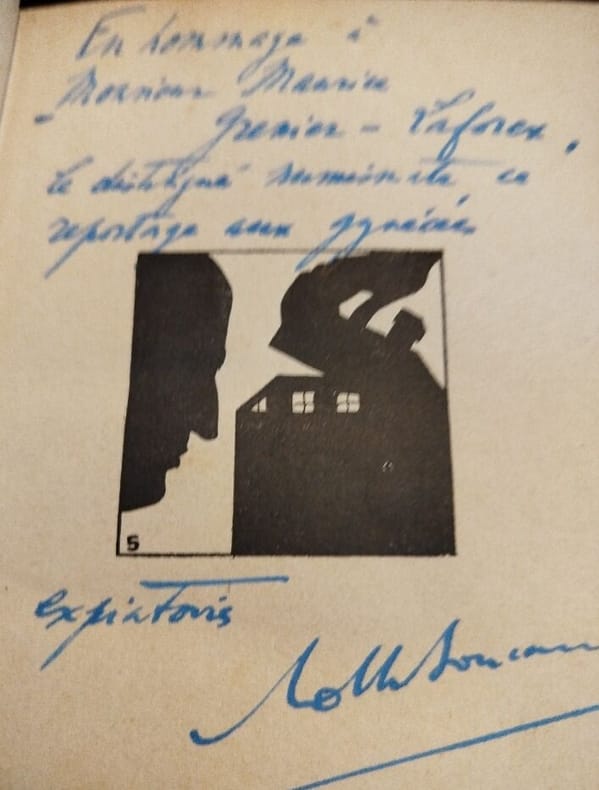 En hommage à
Monsieur Maurice
Grenier-Laforex,
le distingué en
reportage aux gynécées
5
expiatoris